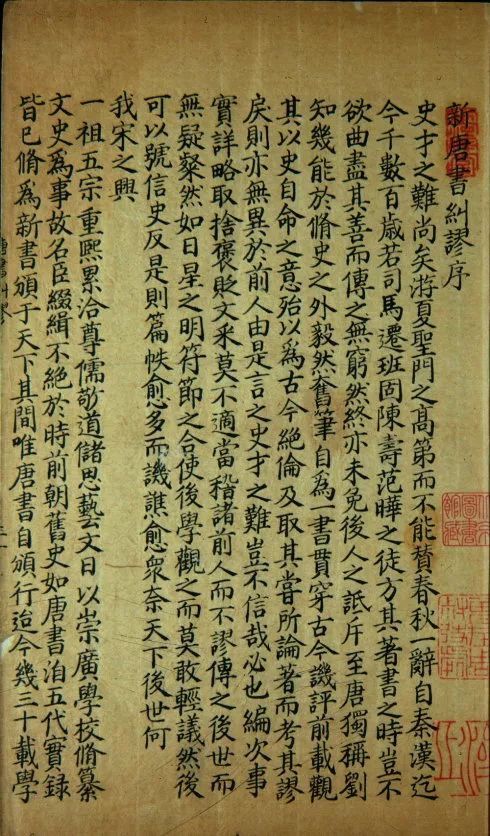 新唐書糾謬序
史才之難尚矣游夏聖門之高第而不能賛春秋一辭自秦漢迄
今千數百歳若司馬遷班固陳壽范曄之徒方其著書之時豈不
欲曲盡其善而傳之無窮然終亦未免後人之詆斥至唐獨稱劉
知幾能於脩史之外毅然奮筆自為一書貫穿古今譏評前載觀
其以史自命之意殆以為古今絶倫及取其嘗所論著而考其謬
戾則亦無異於前人由是言之史才之難豈不信哉必也編次事
實詳略取捨褒貶文采莫不適當稽諸前人而不謬傳之後世而
無疑粲然如日星之明符節之合使後學觀之而莫敢輕議然後
可以號信史反是則篇帙愈多而譏譙愈衆奈天下後世何
我宋之興
一祖五宗重熙累洽尊儒敬道儲思藝文日以崇廣學校脩纂
文史為事故名臣綴緝不絶於時前朝舊史如唐書洎五代實録
皆已脩為新書頒于天下其間唯唐書自頒行迨今幾三十載學